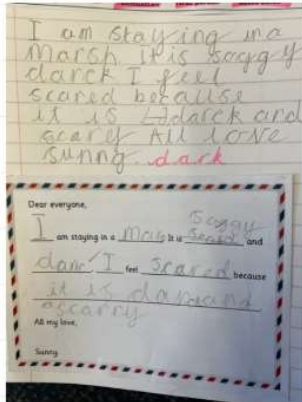 I am staying in a
Marsh It is soggy
darck I feel
scared because
it is darck and
scarey All love
sunny. dark
Dear everyone,
soggy
I am staying in a It is and
I feel scared because
it is and
scarry
All my love,
Sunny